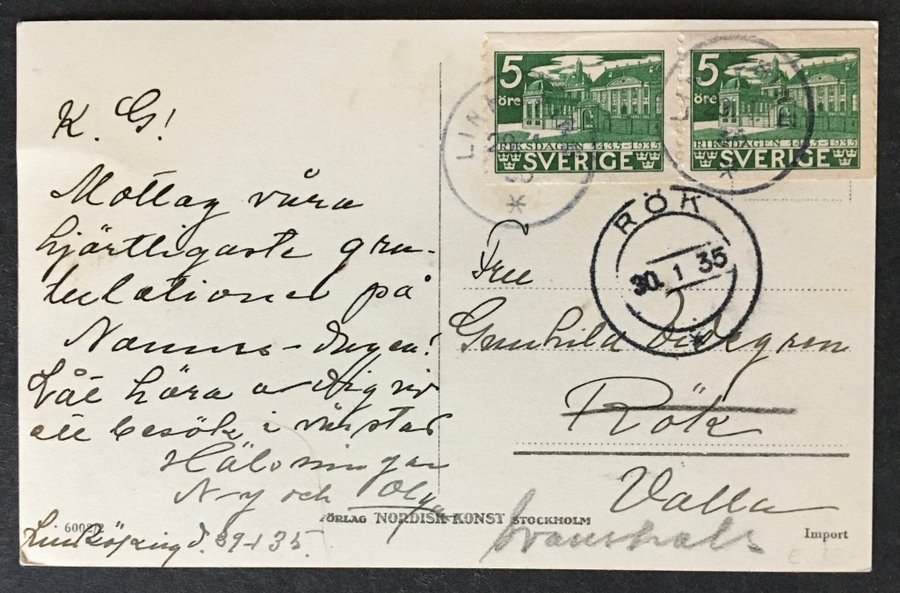 K. G!
Mottag våra
hjärtligaste gra-
tulationer på
Namns-dagen!
Låt höra a dig vid
ett besök i vår stad
Hälsningar
N-y och Olga
Linköping d. 29-1 35.
6002/2
FÖRLAG NORDISK KONST STOCKHOLM
Import
5 öre
RIKSDAGEN 1435-1935
SVERIGE
5 öre
RIKSDAGEN 1435-1935
SVERIGE
RÖK
30. 1 35
Fru
Gunhild
Rök
Valla